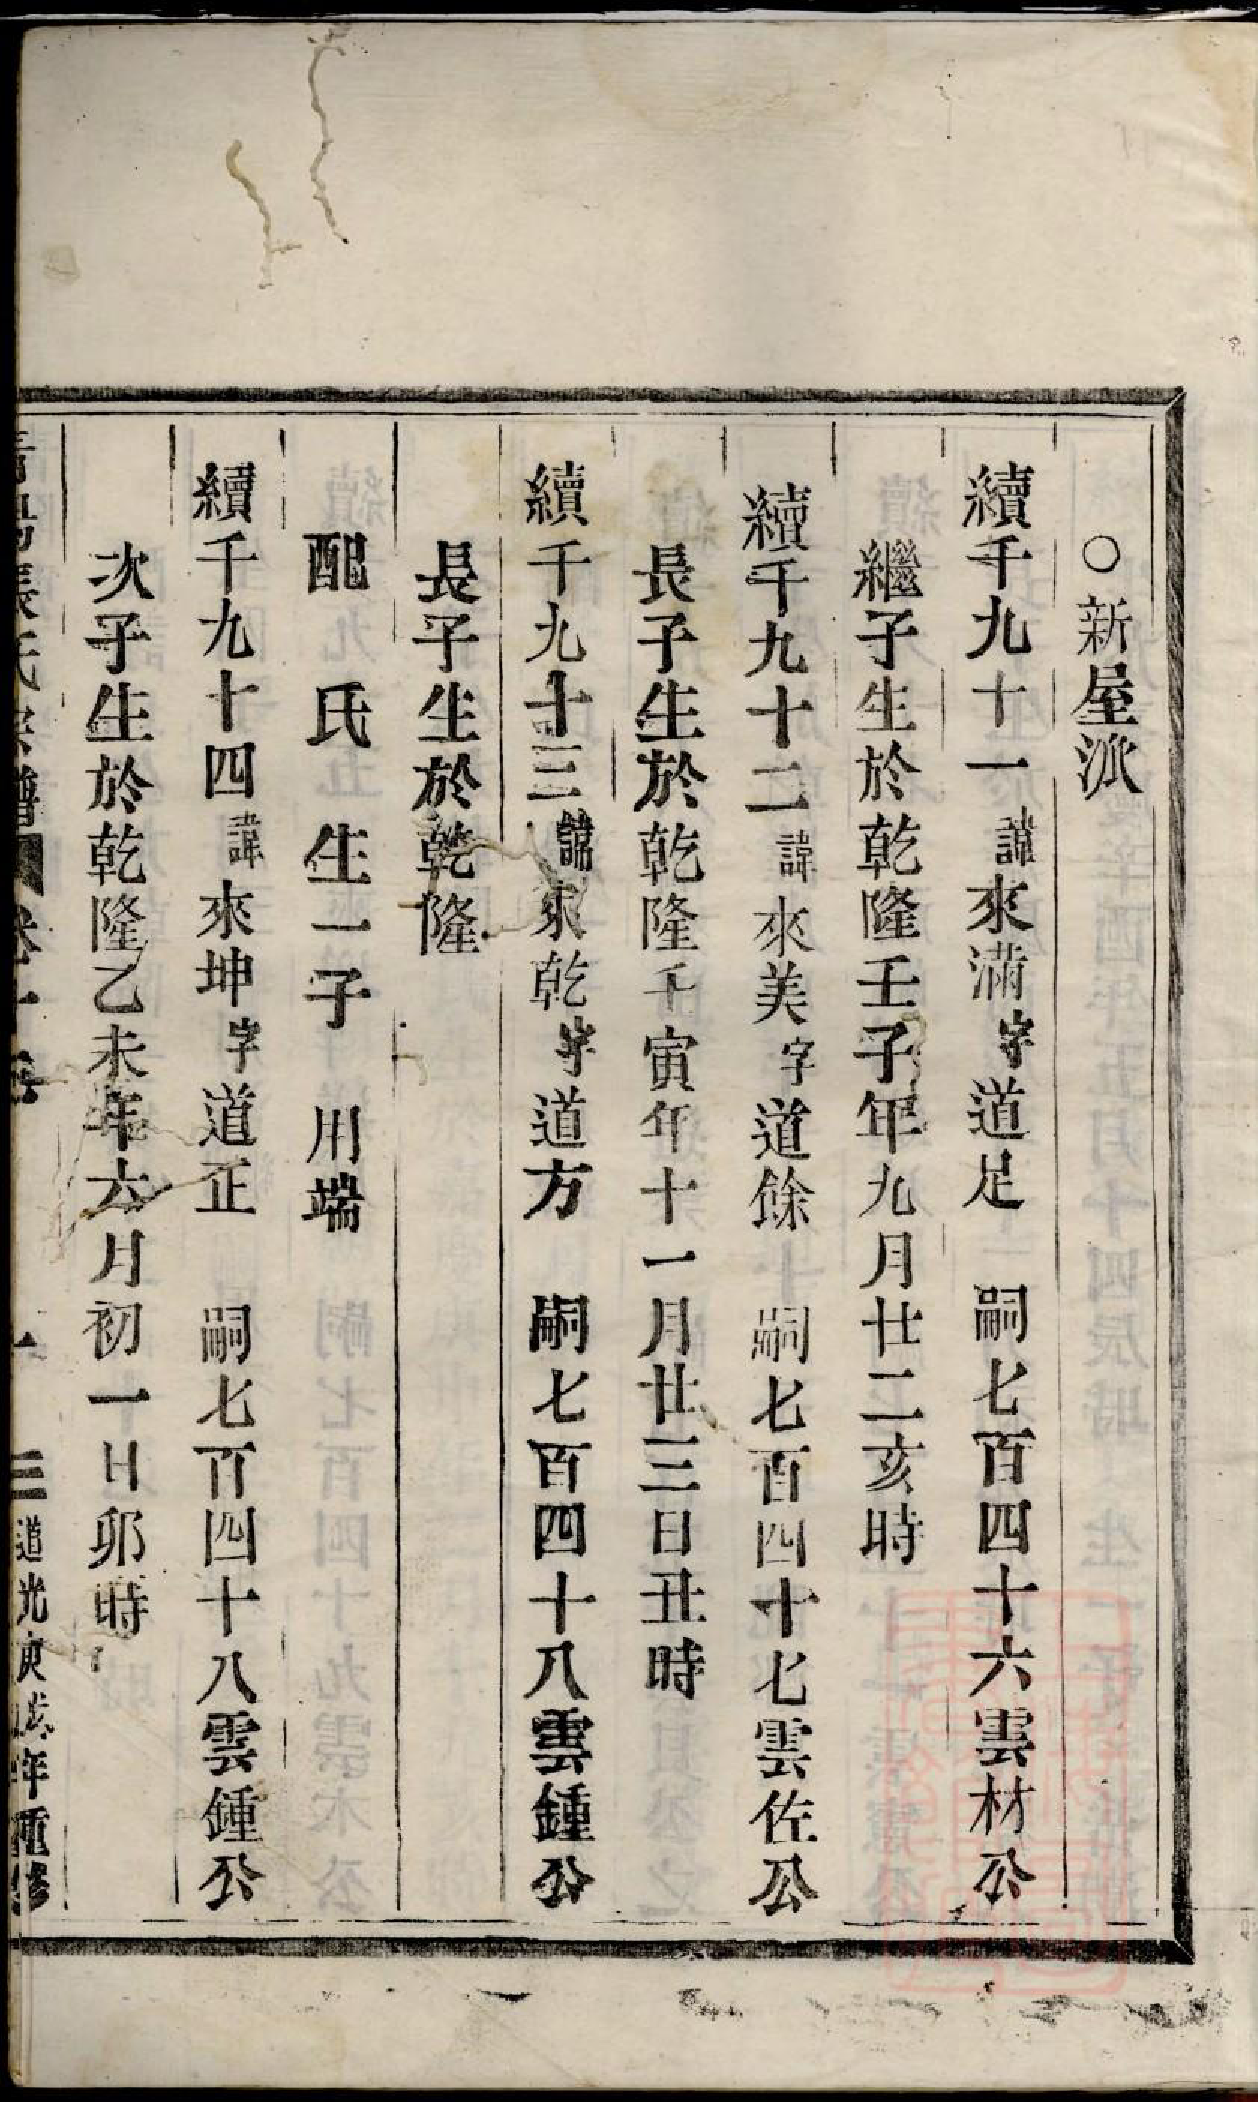 ○新屋派
續千九十一諱來滿字道足　嗣七百四十六雲材公
繼子生於乾隆壬子年九月廿二亥時
續千九十二諱來美字道餘　嗣七百四十七雲佐公
長子生於乾隆壬寅年十一月廿三日丑時
續千九十三諱來乾字道方　嗣七百四十八雲鍾公
長子生於乾隆
配　氏　生一子　用端
續千九十四諱來坤字道正　嗣七百四十八雲鍾公
次子生於乾隆乙未年六月初一日卯時
張氏宗譜　卷十　道光庚戌年重修